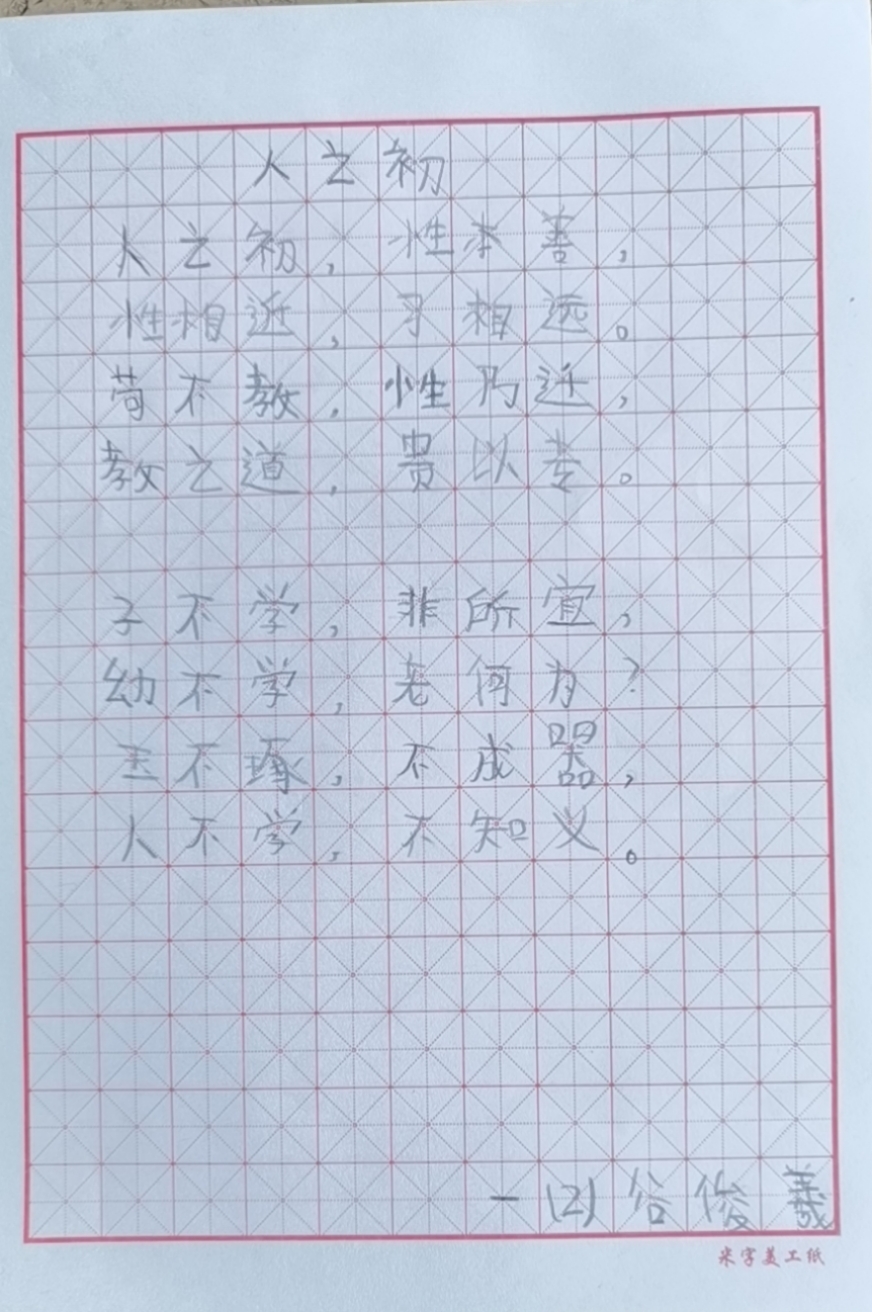 人之初
人之初，性本善，
性相近，习相远。
苟不教，性乃迁，
教之道，贵以专。
子不学，非所宜，
幼不学，老何为？
玉不琢，不成器，
人不学，不知义。
一(2)谷俊羲
米字美工纸